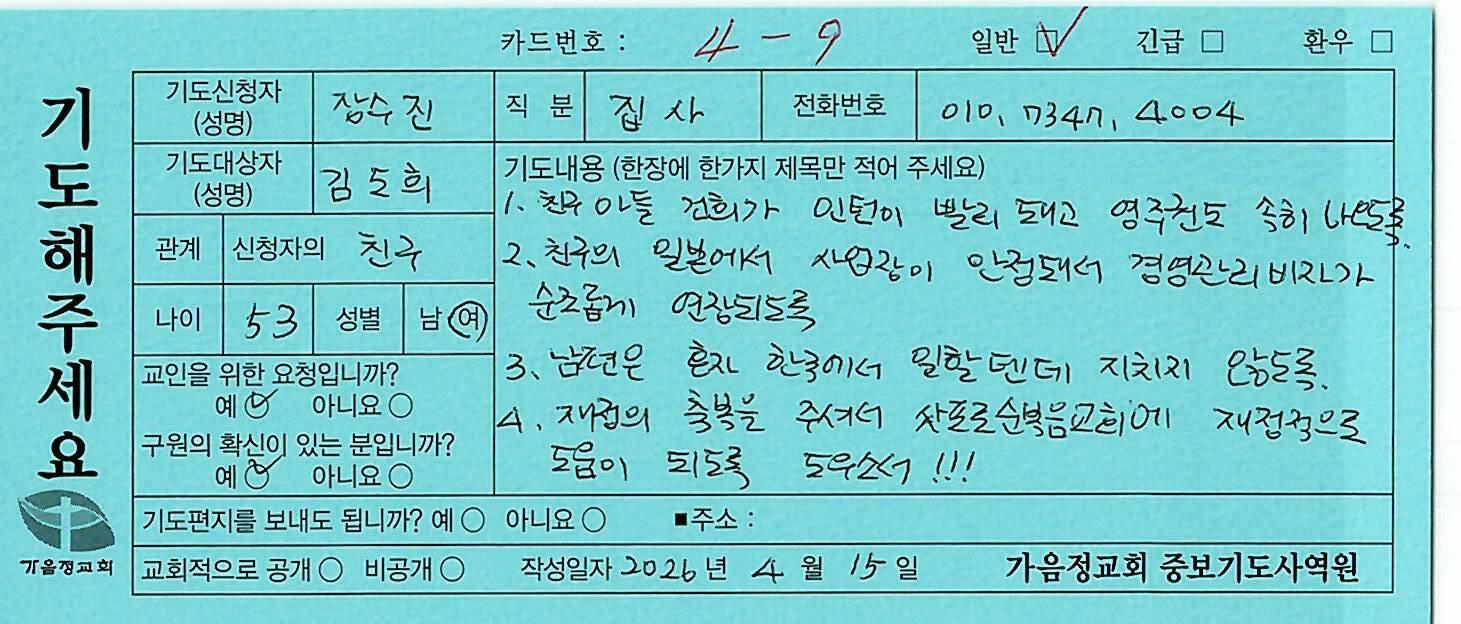 카드번호 : 4 - 9 일반 ☑ 긴급 □ 환우 □
기도해주세요
가음정교회
기도신청자 (성명) 장수진 직 분 집사 전화번호 010, 7347, 4004
기도대상자 (성명) 김도희
관계 신청자의 친구
나이 53 성별 남 여
교인을 위한 요청입니까?
예 ✓ 아니요 ○
구원의 확신이 있는 분입니까?
예 ✓ 아니요 ○
기도내용 (한장에 한가지 제목만 적어 주세요)
1. 친구 아들 건희가 인턴이 빨리 돼고 영주권도 속히 나오도록.
2. 친구의 일본에서 사업장이 안정돼서 경영관리비자가
순조롭게 연장되도록
3. 남편은 혼자 한국에서 일할텐데 지치지 않도록.
4. 재정의 축복을 주셔서 삿포로순복음교회에 재정적으로
도움이 되도록 도우소서 !!!
기도편지를 보내도 됩니까? 예 ○ 아니요 ○ ■주소 :
교회적으로 공개 ○ 비공개 ○ 작성일자 2026 년 4 월 15 일 가음정교회 중보기도사역원